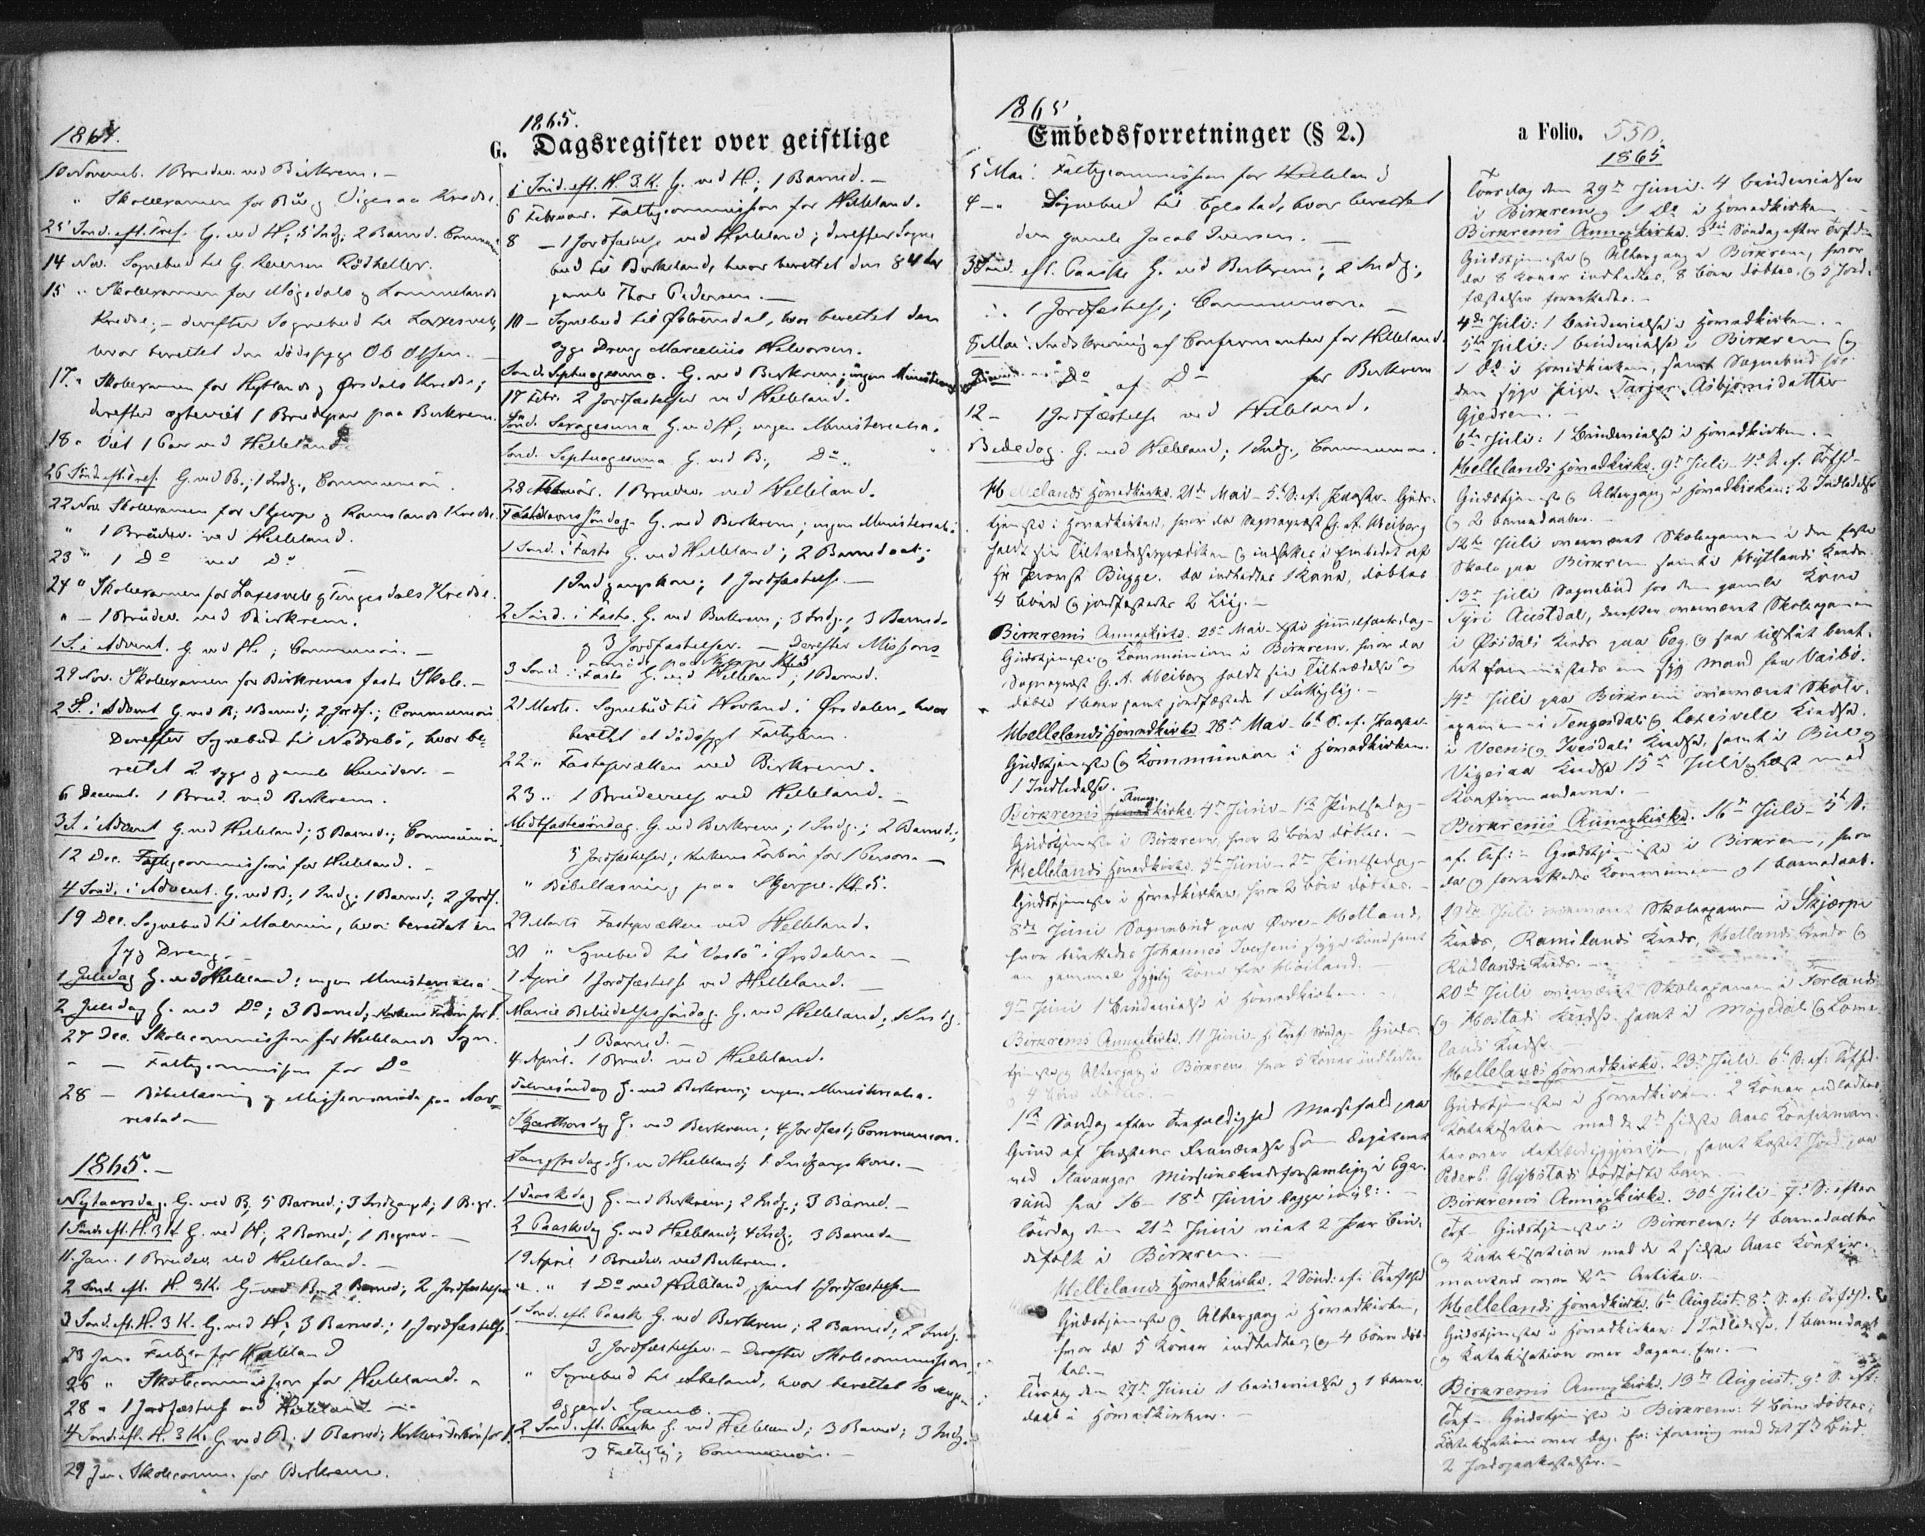 1864.
10 Novemb. 1 Brudev. ved Birkrem. -
" Skoleexamen for Bue og Vigesaa Kredse.
25 Sønd. eft. Tref. G. ved H; 5 Indg; 2 Barned. Commun
14 Nov. Sognebud til G.
15 " Skoleexamen for Møgedals og Lommelands
Kredse; - derefter Sognebud til Laxesvela,
hvor berettet den dødssyge Ole Olsen. -
17. " Skoleexamen for og Ørsdals Kredse;
derefter ægteviet 1 Brudepar paa Birkrem.
18 " Viet 1 Par ved Helleland.
26 Sønd. eft. Tref. G. ved B.; 1 Indg., Communion.
22 Nov. Skoleexamen for Skjerpe og Ramslands Kredse.
" 1 Brudev. ved Helleland.
23 " 1 Do ved Do -
24 " Skoleexamen for Laxesvela og Tengesdals Kredse.
" - 1 Brudev. ved Birkrem.
1 S. i Advent. G. ved H.; Communion. -
29 Nov. Skoleexamen for Birkrems faste Skole. -
2 S. i Advent G. ved B; 1 Barned; 2 Jordf.; Communion
Derefter Sognebud til Nedrebø, hvor be-
rettet 2 syge og gamle Qvinder. -
6 Decemb. 1 Brud. ved Birkrem.
3 S. i Advent G. ved Helleland; 3 Barned.; Communion
12 Dec. Fattigcommission for Helleland. -
4 Sønd. i Advent. G. ved B; 1 Indg; 1 Barned; 2 Jordf.
19 Dec. Sognebud til Malmin, hvor berettet en
syg Dreng. -
1 Juledag G. ved Helleland; ingen Ministerialia -
2 Juledag G. ved Do; 3 Barned; Kirkens Forbøn for 1.
27 Dec. Skolecommission for Hellelands Sogn.
- - Fattigcommission for Do
28 - Bibellæsning og Missionsmøde paa Aar-
restad -
1865. -
Nytaarsdag. G. ved B; 5 Barned; 3 Indgangsk; 1 Begr.
1 Sønd. eft. H. 3 K. G. ved H; 2 Barned; 1 Begrav. -
11 Jan. 1 Brudev. ved Helleland. -
2 Sønd. eft. H. 3 K. G. ved B; 2 Barned; 2 Jordfæstelser
3 Sønd. eft. H. 3 K. G. ved H; 3 Barned.; 1 Jordfæstelse.
23 Jan. for Helleland
26 " Skolecommission for Helleland. "
28 " 1 Jordfæstelse ved Helleland -
4 Sønd. eft. H. 3 K. G. ved B; 1 Barned; Kirkens Forbøn for 1.
29 Jan. Skolecomm. for Birkrem.
1865.
G. Dagsregister over geistlige
5 Sønd. eft. H. 3. K. G. ved H; 1 Barned. -
6 Februar. Fattigcommission for Helleland.
8 - 1 Jordfæstelse ved Helleland; derefter Sogne
bud til Birkeland, hvor berettet den 84 Aar
gamle Thor Pedersen. -
10 - Sognebud til, hvor berettet den
syge Dreng Marcelius Halvorsen.
Sønd. Septuagesima. G. ved Birkrem; ingen Ministerialia
17 Febr. 2 Jordfæstelser ved Helleland.
Sønd. Sexagesima G. ved H; ingen Ministerialia.
Sønd. Septuagesima G. ved B; Do "
28 Februar. 1 Brudev. ved Helleland.
Fastelavnssøndag. G. ved Birkrem; ingen Ministerialia
1 Sønd. i Faste G. ved Helleland; 2 Barnedaab;
1 Indgangskone; 1 Jordfæstelse. -
2 Sønd. i Faste. G. ved Birkrem; 3 Indg.; 3 Barned.
og 3 Jordfæstelser. - Derefter Missions-
møde paa Skjerpe Kl 5
3 Sønd. i Faste G. ved Helleland; 1 Barned.
21 Marts. Sognebud til Hovland i Ørsdalen, hvor
berettet et dødssygt Fattiglem.
22 " Fasteprædken ved Birkrem.
23 " 1 Brudevielse ved Helleland. -
Midfastesøndag. G. ved Birkrem; 1 Indg.; 2 Barned;
3 Jordfæstelser; Kirkens Forbøn for 1 Person -
" Bibellæsning paa Skjerpe. Kl. 5.
29 Marts Fasteprædken ved Helleland.
30 " Sognebud til Vasbø i Ørsdalen. -
1 April 1 Jordfæstelse ved Helleland. -
Mariæ Bebudelses Søndag. G. ved Helleland; 1 Indg.
1 Barned. -
4 April. 1 Brud. ved Helleland.
Palmesøndag G. ved Birkrem; ingen Ministerialia.
Skjærthorsdag G. ved Birkrem; 4 Jordfæst; Communion.
Langfredag. G. ved Helleland; 1 Indgangskone. -
1 Paaskedag G. ved Birkrem; 2 Indg; 3 Barned. -
2 Paaskedag G. ved Helleland; 4 Indg; 3 Barned. -
19 April 1 Brudev. ved Birkrem.
" " 1 Do ved Helleland, samt 1 Jordfæstelse
1 Sønd. eft. Paaske G. ved Birkrem; 2 Barned; 2 Indg.
3 Jordfæstelser. - Derefter Skolecommission
" Sognebud til, hvor berettet to senge-
liggende Gamle.
2 Sønd. eft. Paaske G. ved Helleland; 3 Barned; 3 Indg.
3 Fattiglig; Communion. -
1865.
Embedsforretninger (§ 2.)
5 Mai. Fattigcommission for Helleland
4 - " Sognebud til Eglestad, hvor berettet
den gamle Jacob Iversen. -
3 Sønd. eft. Paaske G. ved Birkrem; 2 Indg.;
1 Jordfæstelse; Communion.
8 Mai. Indskrivning af Confirmanter for Helleland
Do af Do for Birkrem
12 - 1 Jordfæstelse ved Helleland.
Bededag. G. ved Helleland; 1 Indg., Communion.
Hellelands Hovedkirke. 21de Mai - 5te S. ef. Paaske. Guds-
tjeneste i Hovedkirken, hvor da Sognepræst G. A. Meiberg
holdt sin Tiltrædelsespræken og indsattes i Embedet af
Hr Provst Bugge. Da indlededes 1 Kone, døbtes
4 Børn og jordfæstedes 2 Liig. -
Birkrems Annexkirke. 25de Mai - Christi Himmelfartsdag -
Gudstjeneste og Kommunion i Birkrem, hvor da
Sognepræst G. A. Meiberg holdt sin Tiltrædelse og
døbte 1 Barn samt jordfæstede 1 Liig. -
Hellelands Hovedkirke. 28de Mai - 6te S. ef. Paaske.
Gudstjeneste og Kommunion i Hovedkirken.
1 Indledelse.
Birkrems Annexkirke. 4de Juni - 1ste Pintsedag -
Gudstjeneste i Birkrem, hvor 2 Børn døbtes. -
Hellelands Hovedkirke. 5te Juni - 2den Pintsedag -
Gudstjeneste i Hovedkirken, hvor 2 Børn døbtes. -
8de Juni Sognebud paa Øvre-Motland,
hvor berettedes Johannes Iversens syge Kone samt
en gammel sygelig Kone fra Møiland.
9de Juni 1 Brudevielse i Hovedkirken. -
Birkrems Annexkirke. 11 Juni - H. Tref. Søndag - Guds-
tjeneste og Altergang i Birkrem, hvor 5 Koner indledtes
og 4 Børn døbtes. -
1ste Søndag efter Trefoldighed Messefald paa
Grund af Præstens Fraværelse som Deputeret
ved Stavanger Missionskredsforsamling i Eger-
sund fra 16 - 18de Juni begge incl.: -
Onsdag den 21de Juni viet 2 Par Bru-
defolk i Birkrem. -
Hellelands Hovedkirke. 2 Sønd: ef. Trefoldh.
Gudstjeneste og Altergang i Hovedkirken,
hvor da 5 Koner indledtes, og 4 Børn døb-
tes. -
Tirsdag den 27de Juni 1 Brudevielse og 1 Barne-
daab i Hovedkirken. -
a Folio. 550.
1865
Torsdag den 29de Juni. 4 Brudevielser
i Birkrem og 1 Do i Hovedkirken
Birkrems Annexkirke. 3die Søndag efter Trefoldh.
Gudstjeneste og Altergang i Birkrem, hvor
da 8 Koner indledtes, 8 Børn døbtes, og 3 Jord-
fæstelser forrettedes. -
4de Juli: 1 Brudevielse i Hovedkirken. -
5te Juli: 1 Brudevielse i Birkrem og
1 Do i Hovedkirken, samt Sognebud hos
den syge Pige Tarjer Asbjørnsdatter
Gjedrem. -
6te Juli: 1 Brudevielse i Hovedkirken. -
Hellelands Hovedkirke. 9de Juli - 4de S. ef. Trefh. -
Gudstjeneste og Altergang i Hovedkirken: 2 Indledelser
og 2 Barnedaaber. -
12te Juli overværet Skoleexamen i den faste
Skole paa Birkrem samt i Kreds.
13de Juli Sognebud hos den gamle Kone
Tyri Austdal, derefter overværet Skoleexamen
i Ørsdals Kreds paa Eeg, og saa tilslut beret-
tet sammesteds en syg Mand fra Vasbø.
14de Juli paa Birkrem overværet Skole-
examen i Tengesdals og Laxesvele Kredse.
i Veen og Ivesdals Kredse, samt i Bue og
Vigesaa Kredse 15de Juli og læst med
Konfirmanderne. -
Birkrems Annexkirke. 16de Juli - 5te S.
ef. Tref: - Gudstjeneste i Birkrem, hvor
da forrettedes Kommunion og 1 Barnedaab.
19de Juli overværet Skoleexamen i Skjærpe
Kreds, Ramslands Kreds, Hetlands Kreds og
Rødlands Kreds. -
20de Juli overværet Skoleexamen i Terlands
og Mostads Kredse samt i Møgedals og Lome-
lands Kredse. -
Hellelands Hovedkirke. 23de Juli. 6te S. ef: Trefold.
Gudstjeneste i Hovedkirken. 2 Koner indledtes,
Katekisation med de 2de sidste Aars Konfirman-
ter, samt kastet Jord paa
Peder Glypstads dødfødte Barn
Birkrems Annexkirke. 30te Juli - 7de S: efter
Tref. Gudstjeneste i Birkrem: 4 Barnedaaber
og Katekisation med de 2 sidste Aars Konfir-
manter over 2den Artikel. -
Hellelands Hovedkirke. 6te August. 8de S. ef. Trefold.
Gudstjeneste i Hovedkirken: 1 Indledelse. 1 Barnedaab
og Katekisation over Dagens Ev. -
Birkrems Annexkirke. 13de August. 9de S. eft:
Tref - Gudstjeneste i Birkrem: 4 Børn døbtes;
Katekisation over Dag. Ev: i forening med det 7de Bud.
2 Jordpaakastelser. -